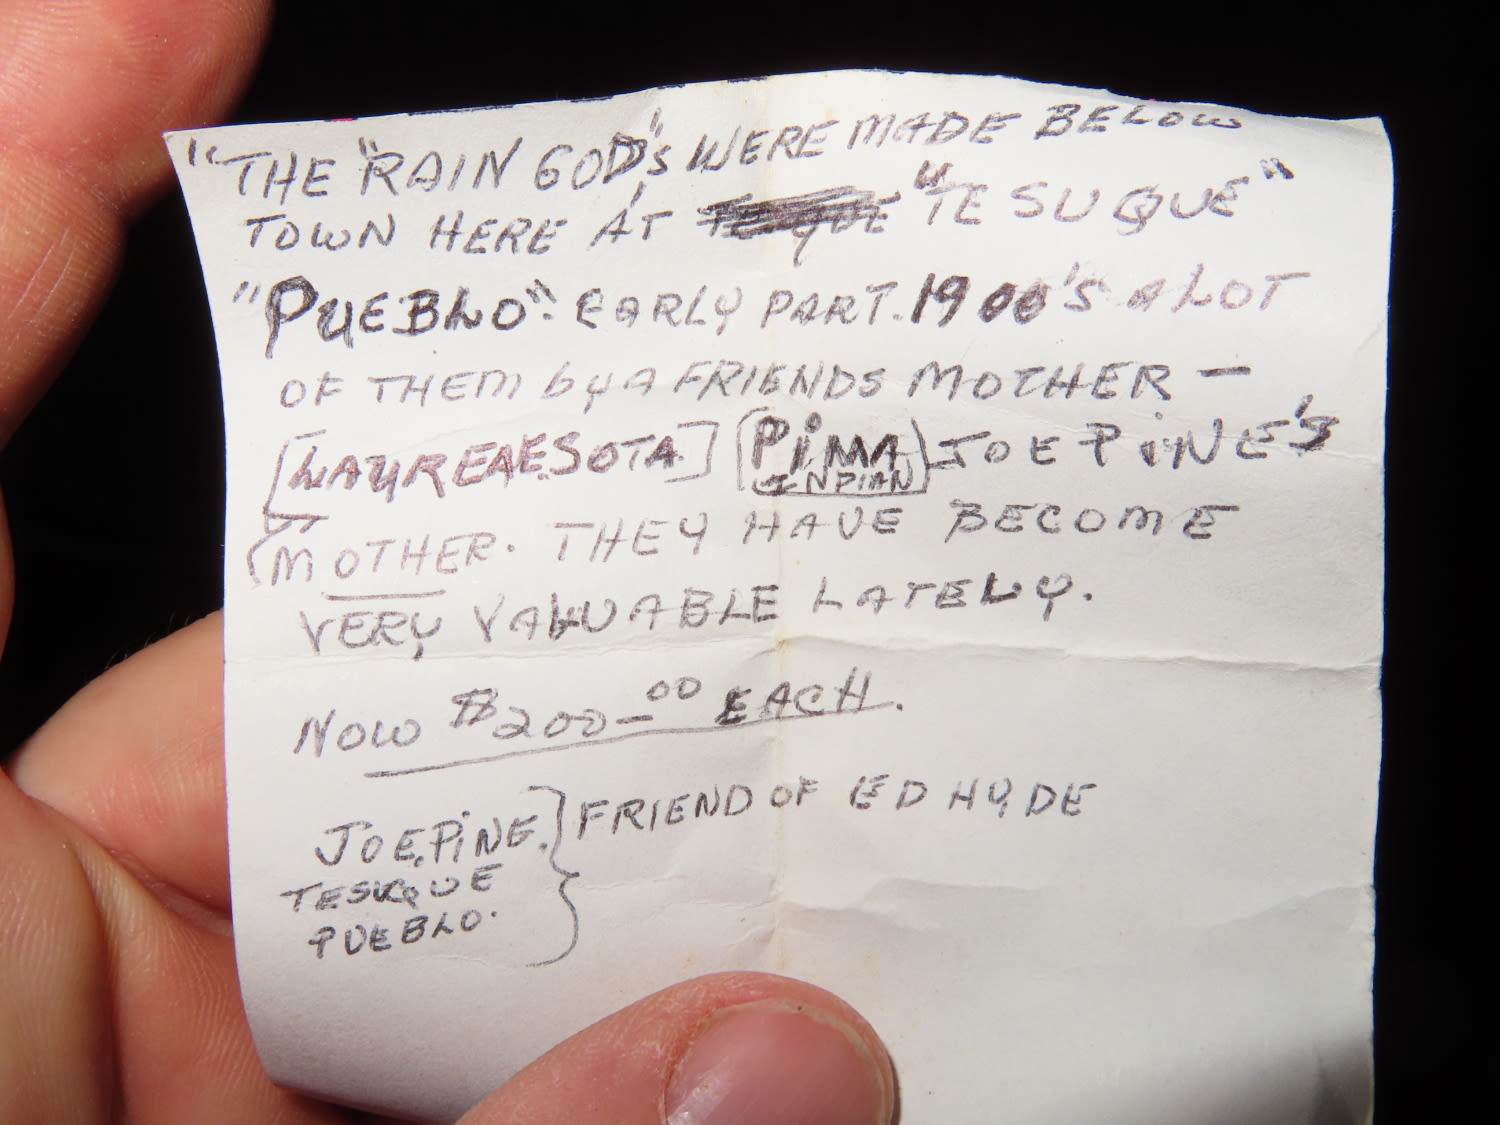 "THE "RAIN GOD'S WERE MADE BELOW
TOWN HERE AT "TESUQUE"
"PUEBLO". EARLY PART. 1900'S A LOT
OF THEM by A FRIENDS MOTHER -
[LAUREAE.SOTA.] (PIMA INDIAN) JOE PINE'S
MOTHER. THEY HAVE BECOME
VERY VALUABLE LATELY.
NOW $200-00 EACH.
JOE.PINE. } FRIEND OF ED HYDE
TESUQUE
PUEBLO.